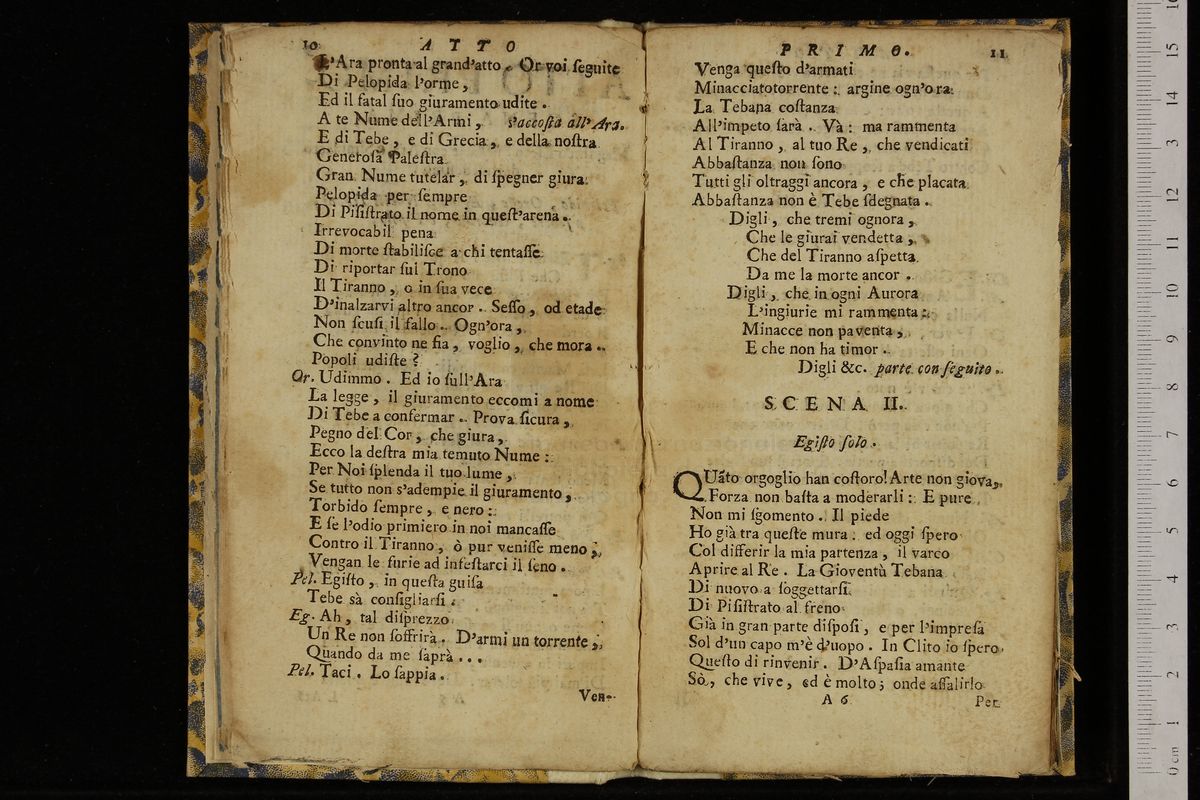 10 ATTO
L'Ara pronta al grand'atto. Or voi ſeguite
Di Pelopida l'orme,
Ed il fatal ſuo giuramento udite.
A te Nume dell'Armi, s'accoſta all'Ara.
E di Tebe, e di Grecia, e della noſtra
Generoſa Paleſtra
Gran Nume tutelar, di ſpegner giura
Pelopida per ſempre
Di Piſiſtrato il nome in queſt'arena.
Irrevocabil pena
Di morte ſtabiliſce a chi tentaſſe
Di riportar ſul Trono
Il Tiranno, o in ſua vece
D'inalzarvi altro ancor. Seſſo, od etade
Non ſcuſi il fallo. Ogn'ora,
Che convinto ne ſia, voglio, che mora.
Popoli udiſte?
Or. Udimmo. Ed io ſull'Ara
La legge, il giuramento eccomi a nome
Di Tebe a confermar. Prova ſicura,
Pegno del Cor, che giura,
Ecco la deſtra mia temuto Nume:
Per Noi ſplenda il tuo lume,
Se tutto non s'adempie il giuramento,
Torbido ſempre, e nero:
E ſe l'odio primiero in noi mancaſſe
Contro il Tiranno, ò pur veniſſe meno;
Vengan le furie ad infeſtarci il ſeno.
Pel. Egiſto, in queſta guiſa
Tebe sà conſigliarſi.
Eg. Ah, tal diſprezzo
Un Re non ſoffrirà. D'armi un torrente;
Quando da me ſaprà...
Pel. Taci. Lo ſappia.
Ven-
PRIMO. 11
Venga queſto d'armati
Minacciatotorrente: argine ogn'ora
La Tebana coſtanza
All'impeto ſarà. Và: ma rammenta
Al Tiranno, al tuo Re, che vendicati
Abbaſtanza non ſono
Tutti gli oltraggi ancora, e che placata
Abbaſtanza non è Tebe ſdegnata.
Digli, che tremi ognora,
Che le giurai vendetta,
Che del Tiranno aſpetta
Da me la morte ancor.
Digli, che in ogni Aurora
L'ingiurie mi rammenta:
Minacce non paventa,
E che non ha timor.
Digli &c. parte con ſeguito.
SCENA II.
Egiſto ſolo.
QUãto orgoglio han coſtoro! Arte non giova,
Forza non baſta a moderarli: E pure
Non mi ſgomento. Il piede
Ho già tra queſte mura: ed oggi ſpero
Col differir la mia partenza, il varco
Aprire al Re. La Gioventù Tebana
Di nuovo a ſoggettarſi
Di Piſiſtrato al freno
Già in gran parte diſpoſi, e per l'impreſa
Sol d'un capo m'è d'uopo. In Clito io ſpero
Queſto di rinvenir. D'Aſpaſia amante
Sò, che vive, ed è molto; onde aſſalirlo
A 6 Per